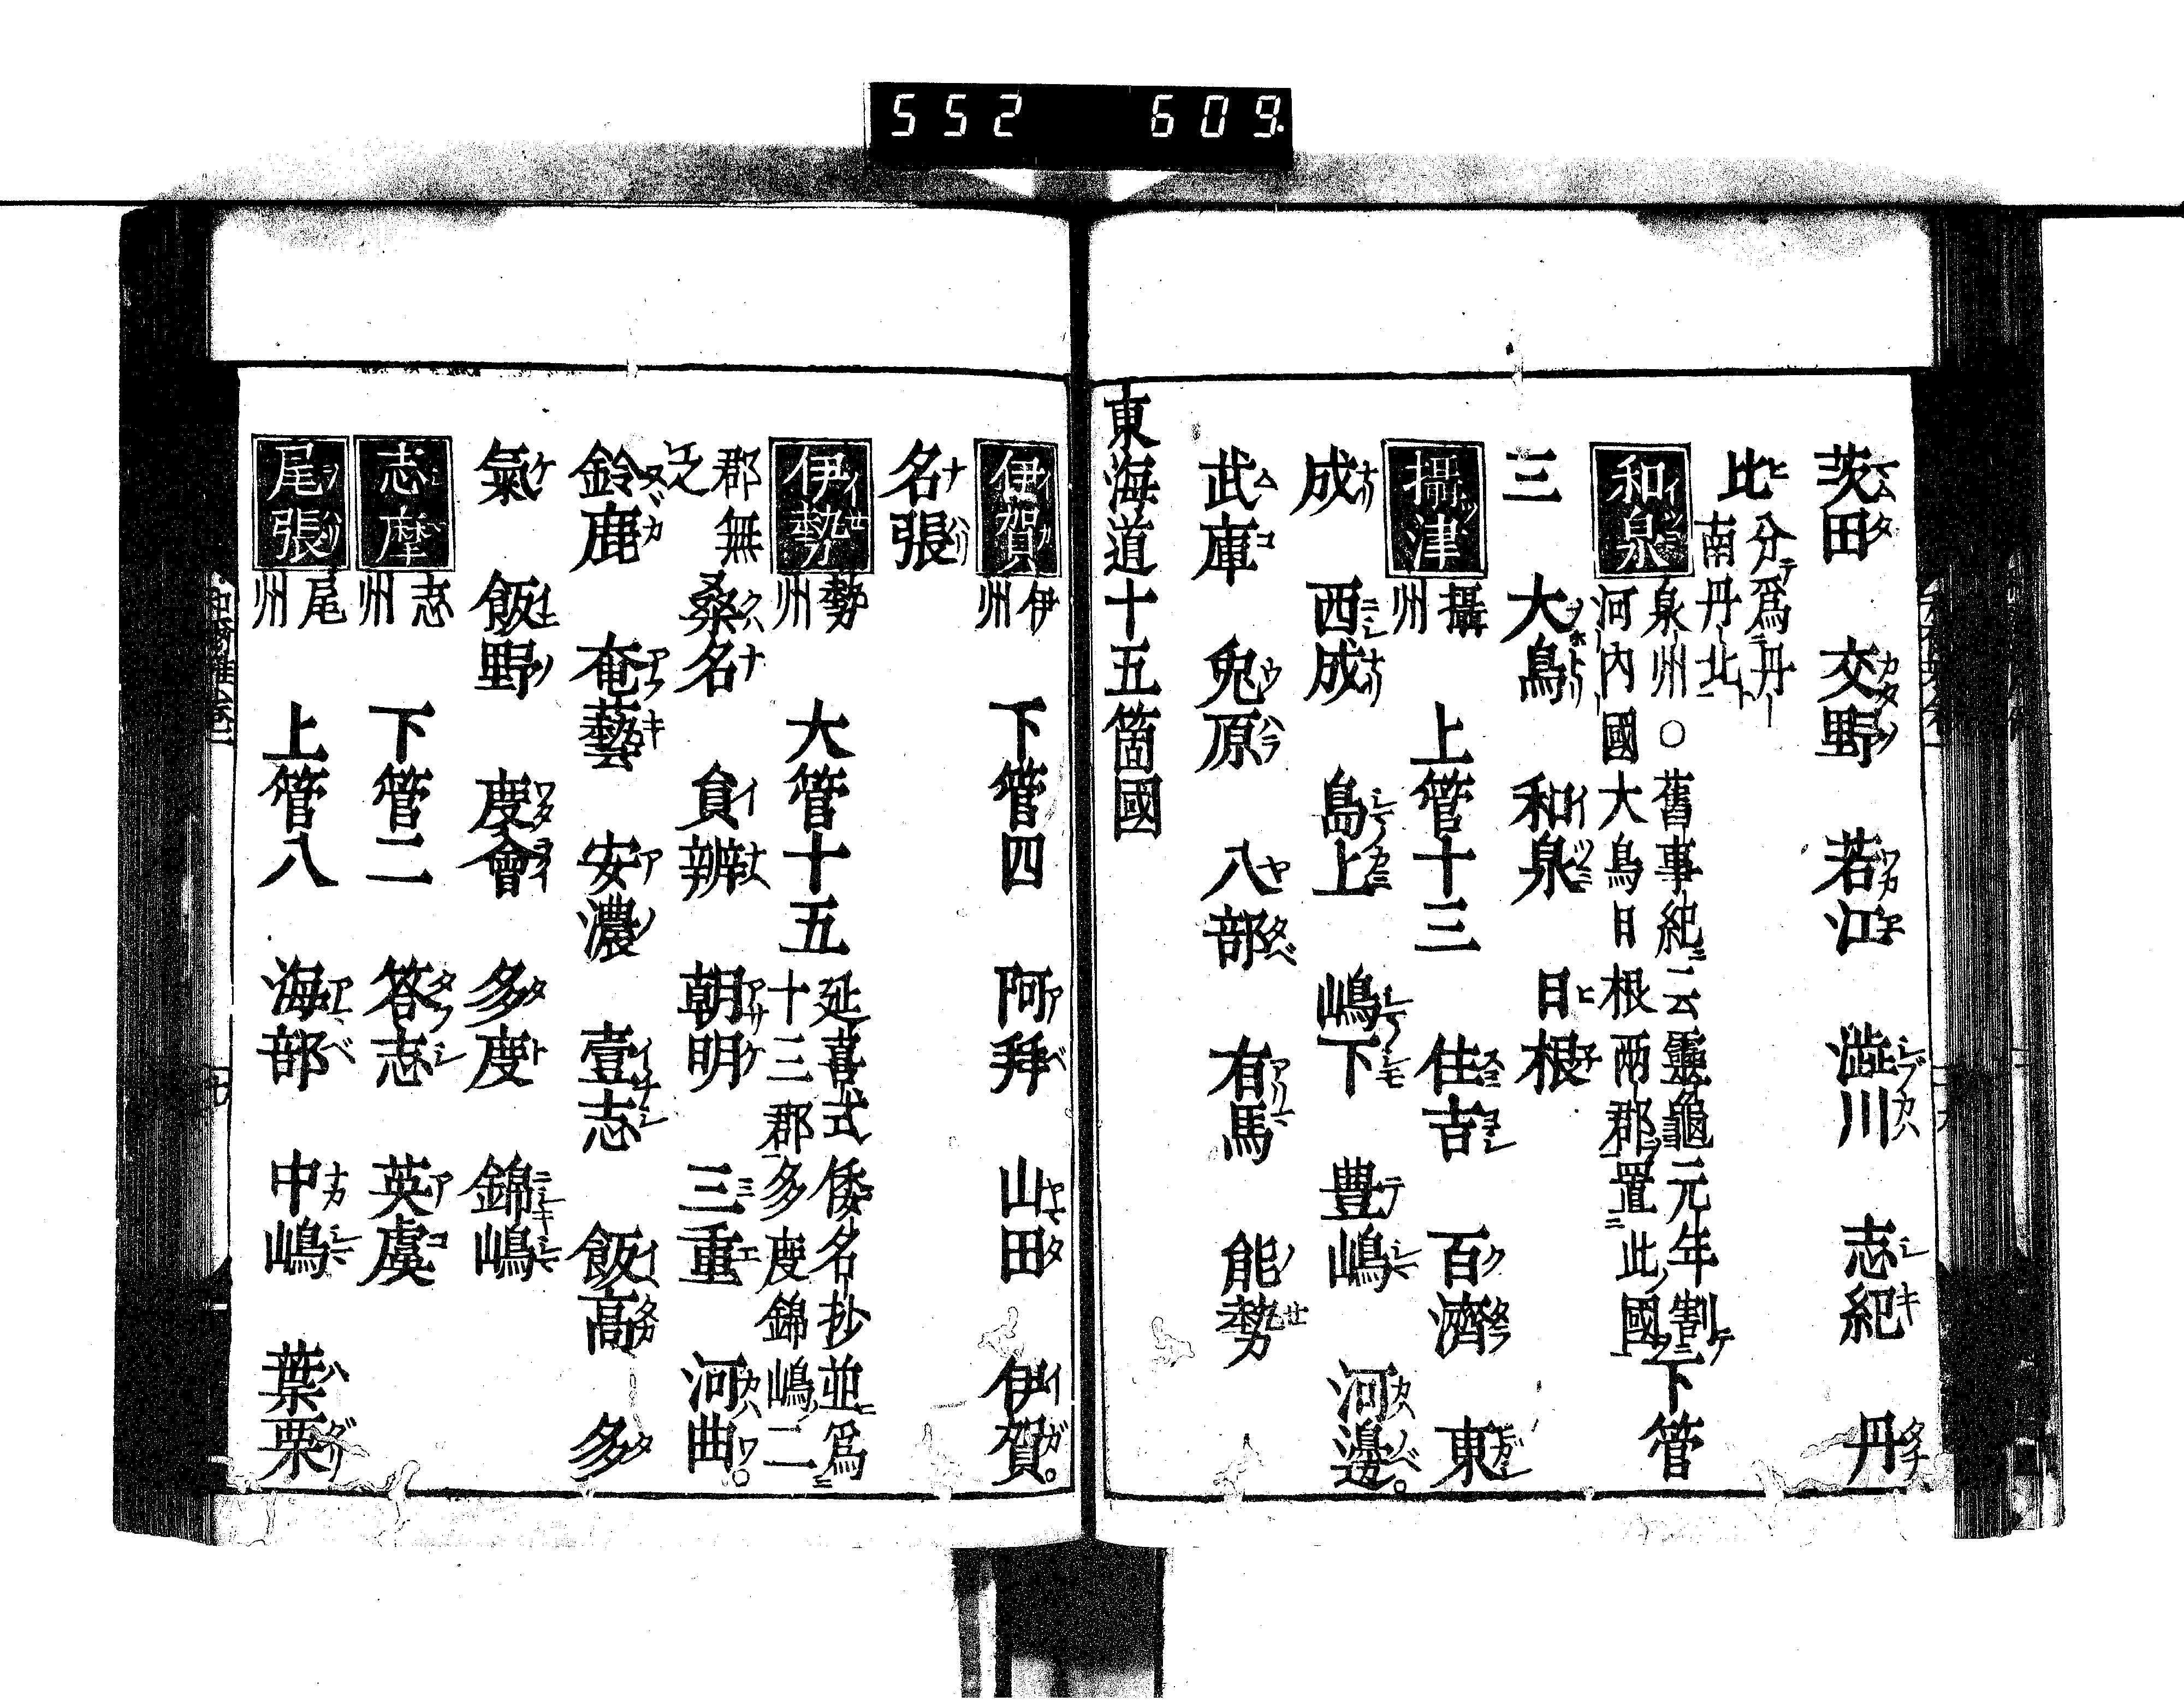 552 609.
茨田 交野 若江 澁川 志紀 丹
比 分爲丹南丹北
和泉 泉州○舊事紀云靈龜元年割河内國大鳥日根兩郡置此國 下管
三 大鳥 和泉 日根
攝津 攝州 上管十三 住吉 百濟 東
成 西成 島上 嶋下 豊嶋 河邊
武庫 兎原 八部 有馬 能勢
東海道十五箇國
伊賀 伊州 下管四 阿拜 山田 伊賀
名張
伊勢 勢州 大管十五 延喜式倭名抄並爲十三郡多度錦嶋二
郡無之 桑名 員辨 朝明 三重 河曲
鈴鹿 奄藝 安濃 壹志 飯高 多
氣 飯野 度會 多度 錦嶋
志摩 志州 下管二 答志 英虞
尾張 尾州 上管八 海部 中嶋 葉栗